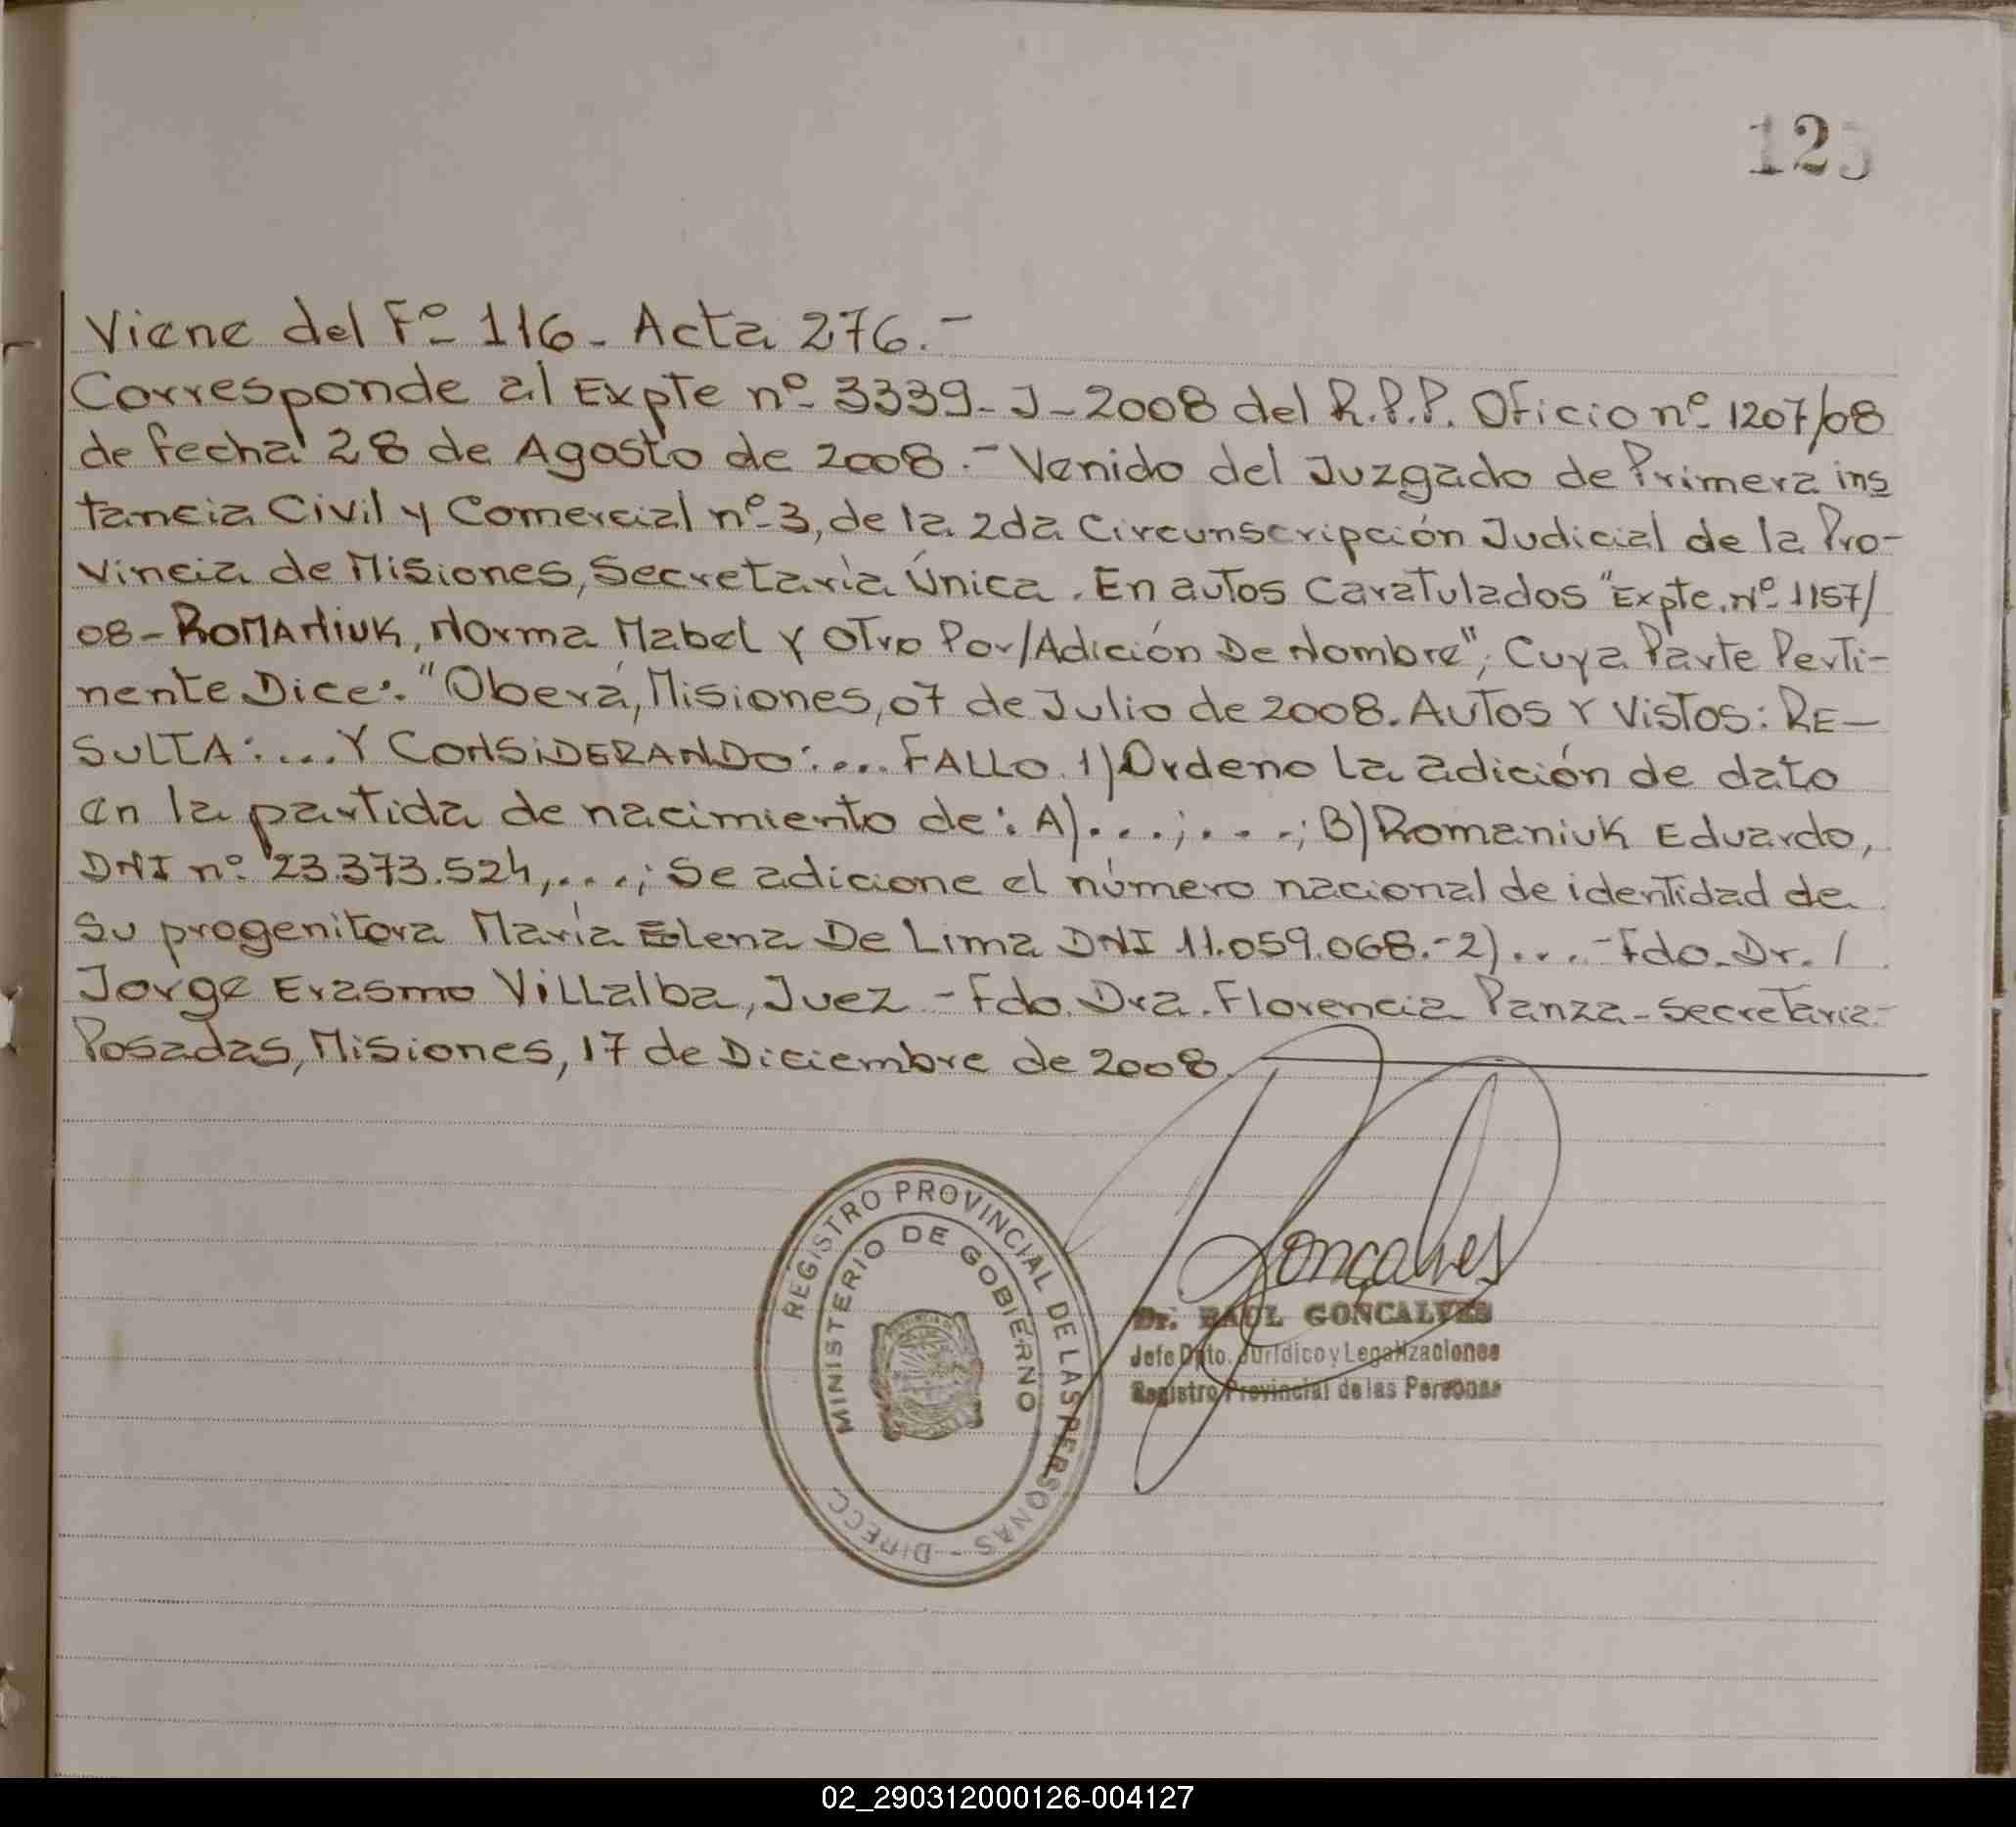 125
Viene del Fº 116 - Acta 276.-
Corresponde al Expte nº 3339-J-2008 del R.P.P. Oficio nº 1207/08
de fecha 28 de Agosto de 2008.- Venido del Juzgado de Primera ins
tancia Civil y Comercial nº 3, de la 2da Circunscripción Judicial de la Pro-
vincia de Misiones, Secretaría Única. En autos Caratulados "Expte. Nº 1157/
08 - ROMANIUK, Norma Mabel y Otro Por/Adición De Nombre"; Cuya Parte Perti-
nente Dice: "Oberá, Misiones, 07 de Julio de 2008. AUTOS Y VISTOS: RE-
SULTA: ... Y CONSIDERANDO: ... FALLO 1) Ordeno la adición de dato
en la partida de nacimiento de: A) ...; ...; B) Romaniuk Eduardo,
DNI nº 23.373.524, ...; Se adicione el número nacional de identidad de
su progenitora María Elena De Lima DNI 11.059.068.- 2) ... - Fdo. Dr. /
Jorge Erasmo Villalba, Juez - Fdo. Dra. Florencia Panza - Secretaria-
Posadas, Misiones, 17 de Diciembre de 2008.
REGISTRO PROVINCIAL DE LAS PERSONAS - DIRECC
MINISTERIO DE GOBIERNO
Gonçalves
Dr. RAUL GONCALVES
Jefe Dpto. Jurídico y Legalizaciones
Registro Provincial de las Personas
02_290312000126-004127